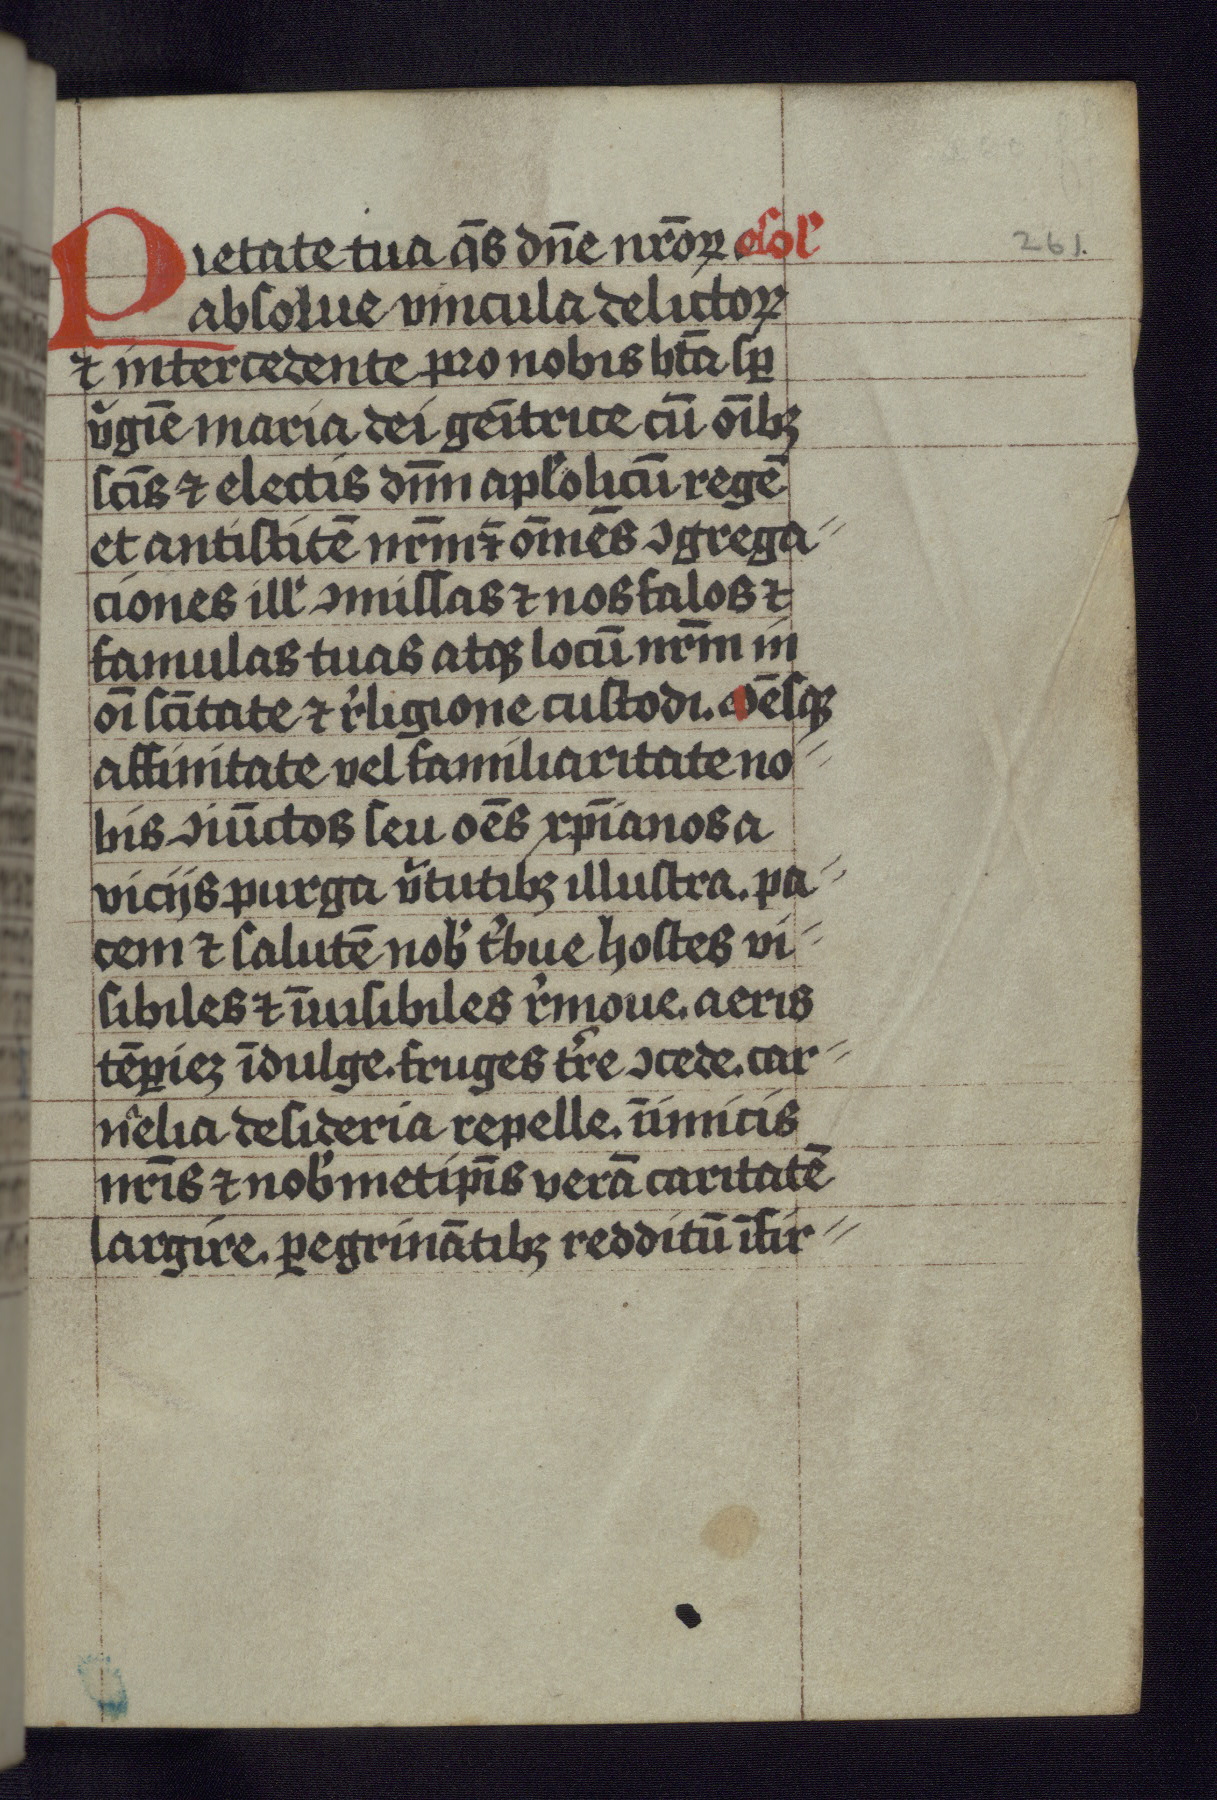 Pietate tua q̄s dn̄e nr̄oꝝ ołoł
absolue vincula delictoꝝ
⁊ intercedente pro nobis bt̄a sꝑ
v̓gīe maria dei geītrice cū oībꝫ
sc̄is ⁊ electis dn̄m apl̓olicū regē
et antistitē nr̄m ⁊ om̄ēs ꝯgrega〃
ciones ill̓ ꝯmissas ⁊ nos falos ⁊
famulas tuas atqꝫ locū nr̄m in
oī sc̄itate ⁊ r̓ligione custodi. oēsqꝫ
affinitate vel familiaritate no〃
bis ꝯiūctos seu oēs xp̄ianos a
vicijs purga v̓tutibꝫ illustra. pa〃
cem ⁊ salutē nob̓ t̓bue hostes vi〃
sibiles ⁊ īuisibiles r̓moue. aeris
tēꝑiēꝫ īdulge. fruges t̓re ꝯcede. car〃
nelia desideria repelle. īimicis
nr̄is ⁊ nob̓metip̄is verā caritatē
largire. ꝑegrinātibꝫ redditū īfir〃
261.